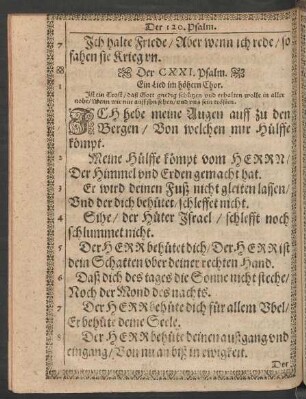 Der 120. Psalm.
7 Ich halte Friede/ Aber wenn ich rede/ so
fahen sie Krieg an.
Der CXXI. Psalm.
Ein Lied im höhern Chor.
Ist ein Trost/ das Gott gnedig schützen und erhalten wolle in aller
nohe/ Wenn wir nur auff jhn sehen/ und uns
1 ICH hebe meine Augen auff zu den
Bergen/ Von welchen mir Hülffe
kömpt.
2 Meine Hülffe kömpt vom HERRN/
Der Himmel und Erden gemacht hat.
3 Er wird deinen Fuß nicht gleiten lassen/
Und der dich behütet/ schleffet nicht.
4 Sihe/ der Hüter Israel/ schlefft noch
schlummet nicht.
5 Der HERR behütet dich/ Der HERR ist
dein Schatten uber deiner rechten Hand.
6 Daß dich des tages die Sonne nicht steche/
Noch der Mond des nachts.
7 Der HERR behüte dich für allem Ubel/
Er behüte deine Seele.
8 Der HERR behüte deinen außgang und
eingang/ Von nu an biß in ewigkeit.
Der